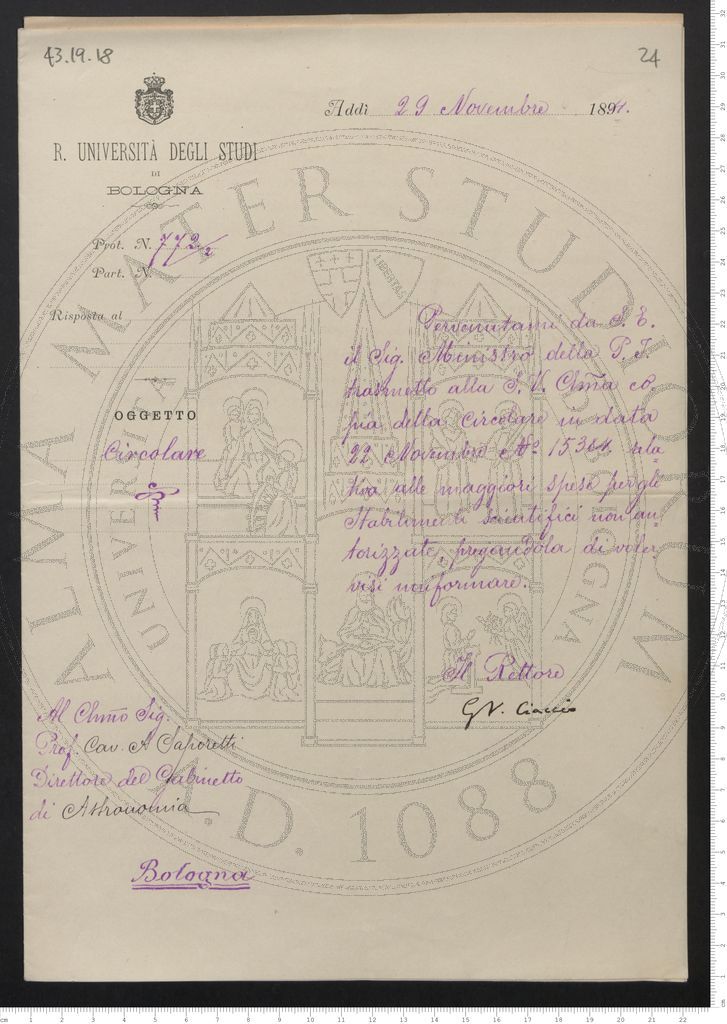 43.19.18
24
Addì 29 Novembre 1891.
R. UNIVERSITÀ DEGLI STUDI
DI
BOLOGNA
Prot. N. 772/2
Part. N.
Risposta al
OGGETTO
Circolare
Pervenutami da S. E.
il Sig. Ministro della P. I.
trasmetto alla S. V. Chma co
pia della Circolare in data
22 Novembre No. 15364 rela
tiva alle maggiori spese per gli
Stabilimenti scientifici non au-
torizzate, pregandola di voler
visi uniformare.
Il Rettore
G V. Ciaccio
Al Chmo Sig.
Prof. Cav. A Saporetti
Direttore del Gabinetto
di Astronomia
Bologna
ALMA MATER STUDIORUM
A.D. 1088
LIBERTAS